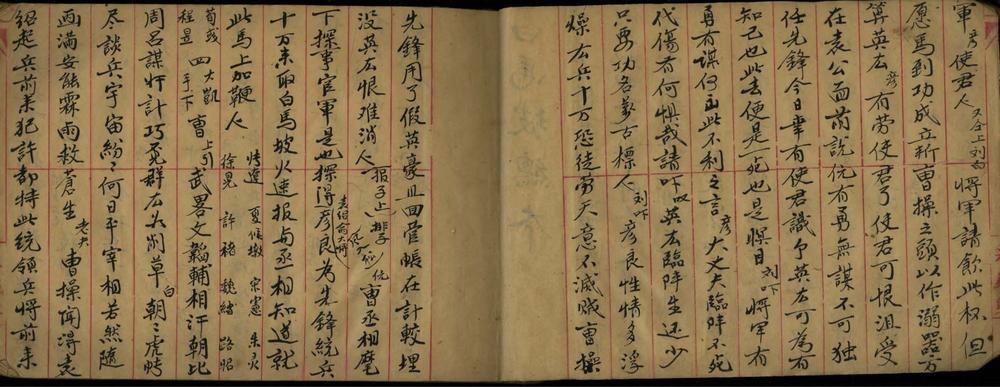 軍 彥使君人 又合上刘白 将軍請飲此杯但
愿馬到功成立斬曹操之頭以作溺器方
算英雄 彥有劳使君了使君可恨沮受
在袁公面前說伉有勇無謀不可独
任先鋒今日幸有使君識予英雄可為有
知己也此去便是一死也是暝目 刘下 将軍有
勇有謀何出此不利之言 彥大丈夫臨阵不死
代傷有何惧哉請吓 英雄臨阵生还少
只要功名萬古標人 刘吓 彥良性情多浮
燥雄兵十万恐徒劳天意不滅賊曹操
先鋒用了假英豪且回营帳在計較埋
没英雄恨难消人 报子上排子 曹丞相麾
下探事官軍是也探得彥良為先鋒統兵
十万来取白馬坡火速报与丞相知道就
此馬上加鞭人
徐晃 許褚 夏候墩 宋憲 路昭
荀彧 程昱 四大凯 手下 曹上引 武畧文韜輔相汗朝比
周呂謀奸計巧竟群雄头削草 白 朝朝虎帐
尽談兵宇宙紛紛何日平宰相若然隨
面满安能霖雨救蒼生 老夫 曹操闻得袁
紹起兵前来犯許都特此統領兵将前来